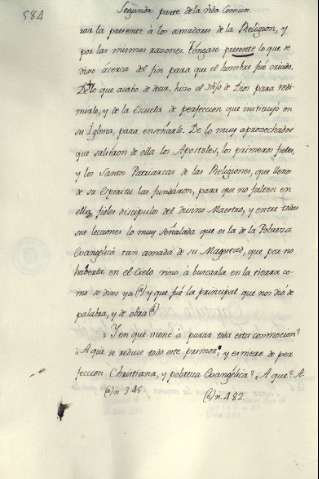 584
Segunda parte de la vida Comun
ran la presente à los amadores de la Religion, y
por las mismas razones. Tengase presente lo que se
dixo àcerca del fin para que el hombre fuè criado.
De lo que acabo de decir, hizo el Hijo de Dios para redi-
mirlo, y de la Escuela de perfeccion que instituyò en
su Iglesia, para enseñarle. De lo muy aprovechados
que salieron de ella los Apostoles, los primeros fieles,
y los Santos Patriarcas de las Religiones, que llenos
de su Espiritu las fundaron, para que no falten en
ellas fieles discipulos del Divino Maestro, y entre todas
sus lecciones lo muy señalada que es la de la Pobreza
Evangèlica tan amada de su Magestad, que por no
haberla en el Cielo vino à buscarla en la tierra co-
mo se dixo ya (a) y que fuè la principal que nos diò de
palabra, y de obra (b)
Y en què viene à parar toda esta conmocion?
A què se reduce todo este primor, y esmero de per-
feccion Christiana, y politica Evangèlica? A què? A
(a) n. 345. (b) n. 482.